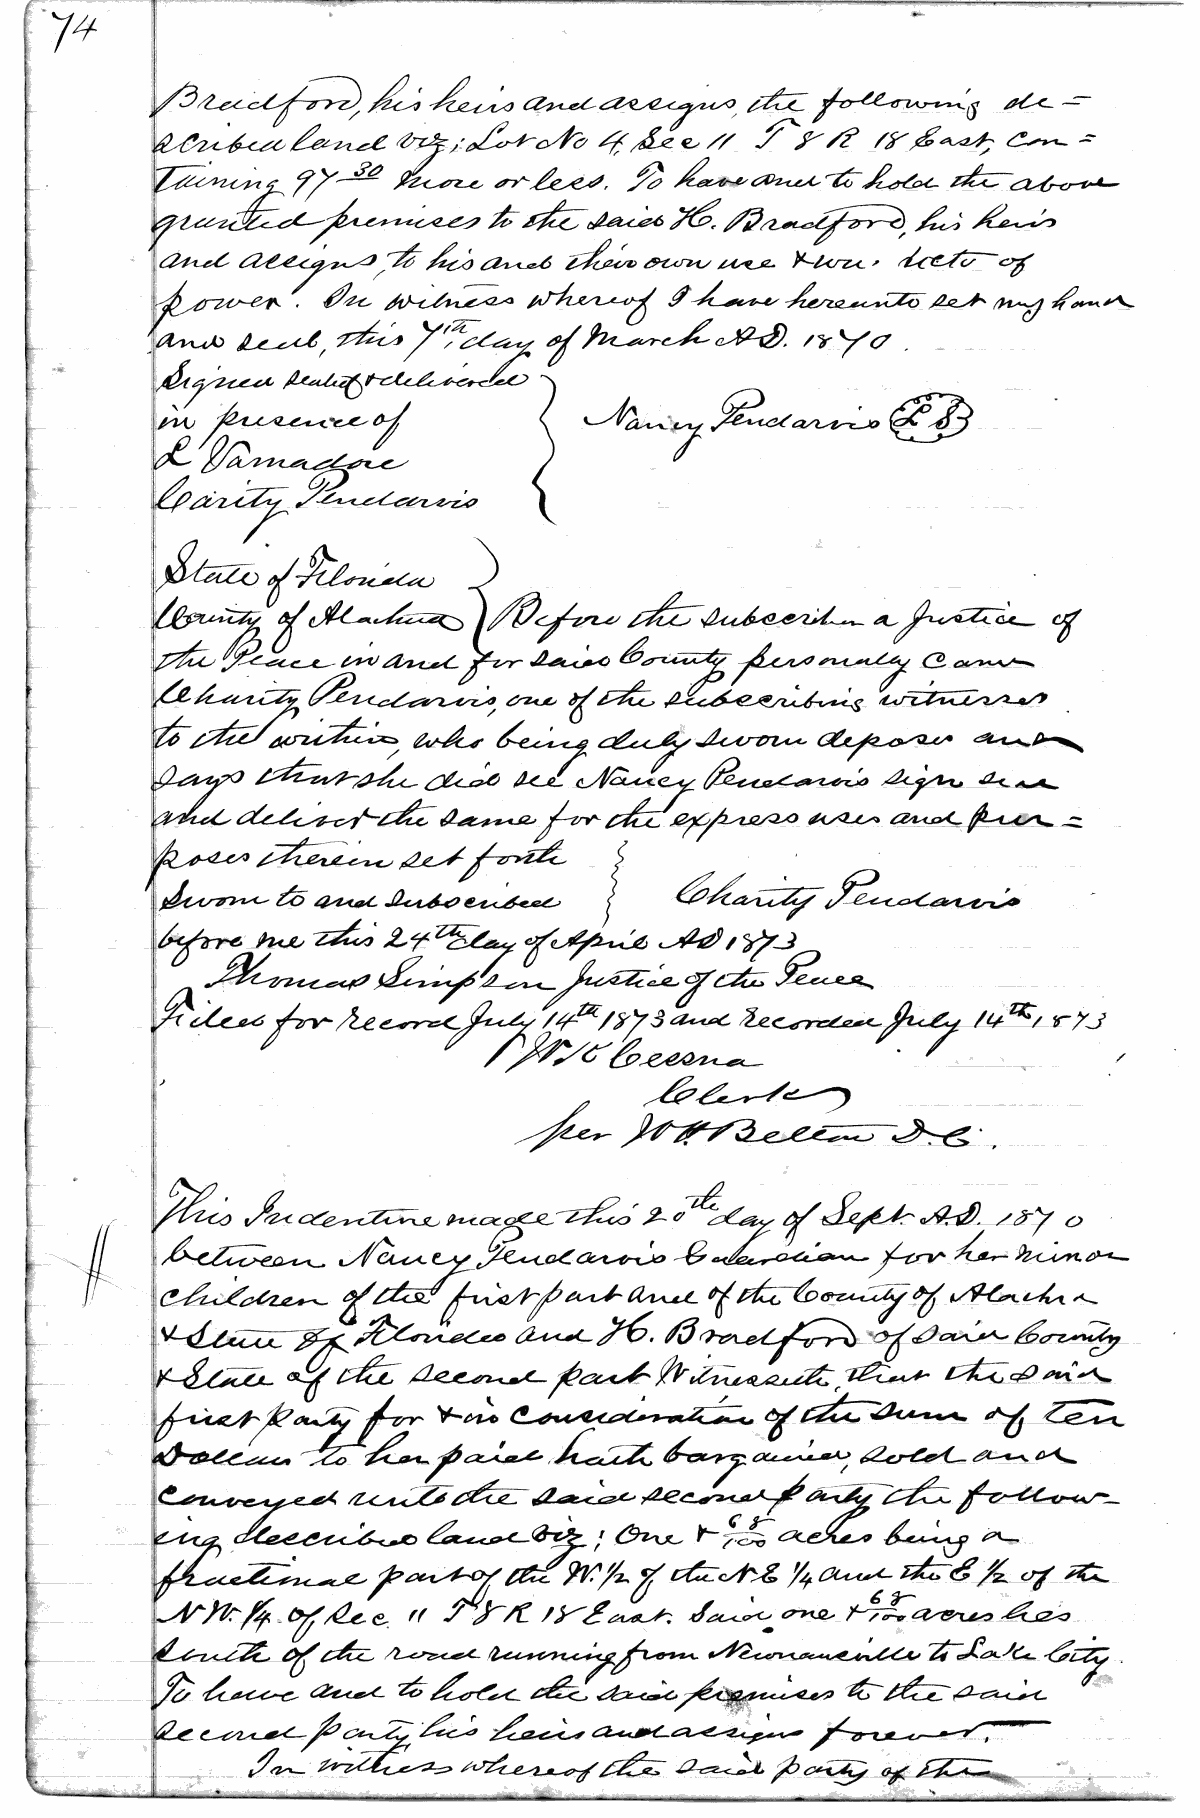 74
Bradford, his heirs and assigns, the following de=
scribed land viz; Lot No 4, Sec 11 T 8 R 18 East, con=
taining 97 30 more or less. To have and to hold the above
granted premises to the said H. Bradford, his heirs
and assigns, to his and their own use & of
power. In witness whereof I have hereunto set my hand
and seal, this 7th, day of March A.D. 1870.
Signed sealed & delivered
in presence of
Nancy Pendarvis L S
L Varnadore
Carity Pendarvis
State of Florida
County of Alachua } Before the subscriber a Justice of
the Peace in and for said County personaly came
Charity Pendarvis, one of the subscribing witnesses
to the within, who being duly sworn deposes and
says that she did see Nancy Pendarvis sign seal
and deliver the same for the express uses and pur=
poses therein set forth
Sworn to and subscribed
Charity Pendarvis
before me this 24th day of April AD 1873
Thomas Simpson Justice of the Peace
Filed for record July 14th 1873 and recorded July 14th, 1873
Cessna
Clerk
per W H Belton D.C.
This Indenture made this 20th day of Sept. A.D. 1870
between Nancy Pendarvis Guardian for her minor
children of the first part and of the County of Alachua
& State of Florida and H. Bradford of said County
& State of the second part Witnesseth, that the said
first party for & in consideration of the sum of ten
Dollars to her paid hath bargained, sold and
conveyed unto the said second party the follow-
ing described land viz; One & 68/100 acres being a
fractional part of the W. 1/2 of the N.E 1/4 and the E 1/2 of the
N.W. 1/4 of Sec. 11 T 8 R 18 East. Said one & 68/100 acres lies
south of the road running from Newnansville to Lake City.
To have and to hold the said premises to the said
second party, his heirs and assigns forever.
In witness whereof the said party of the